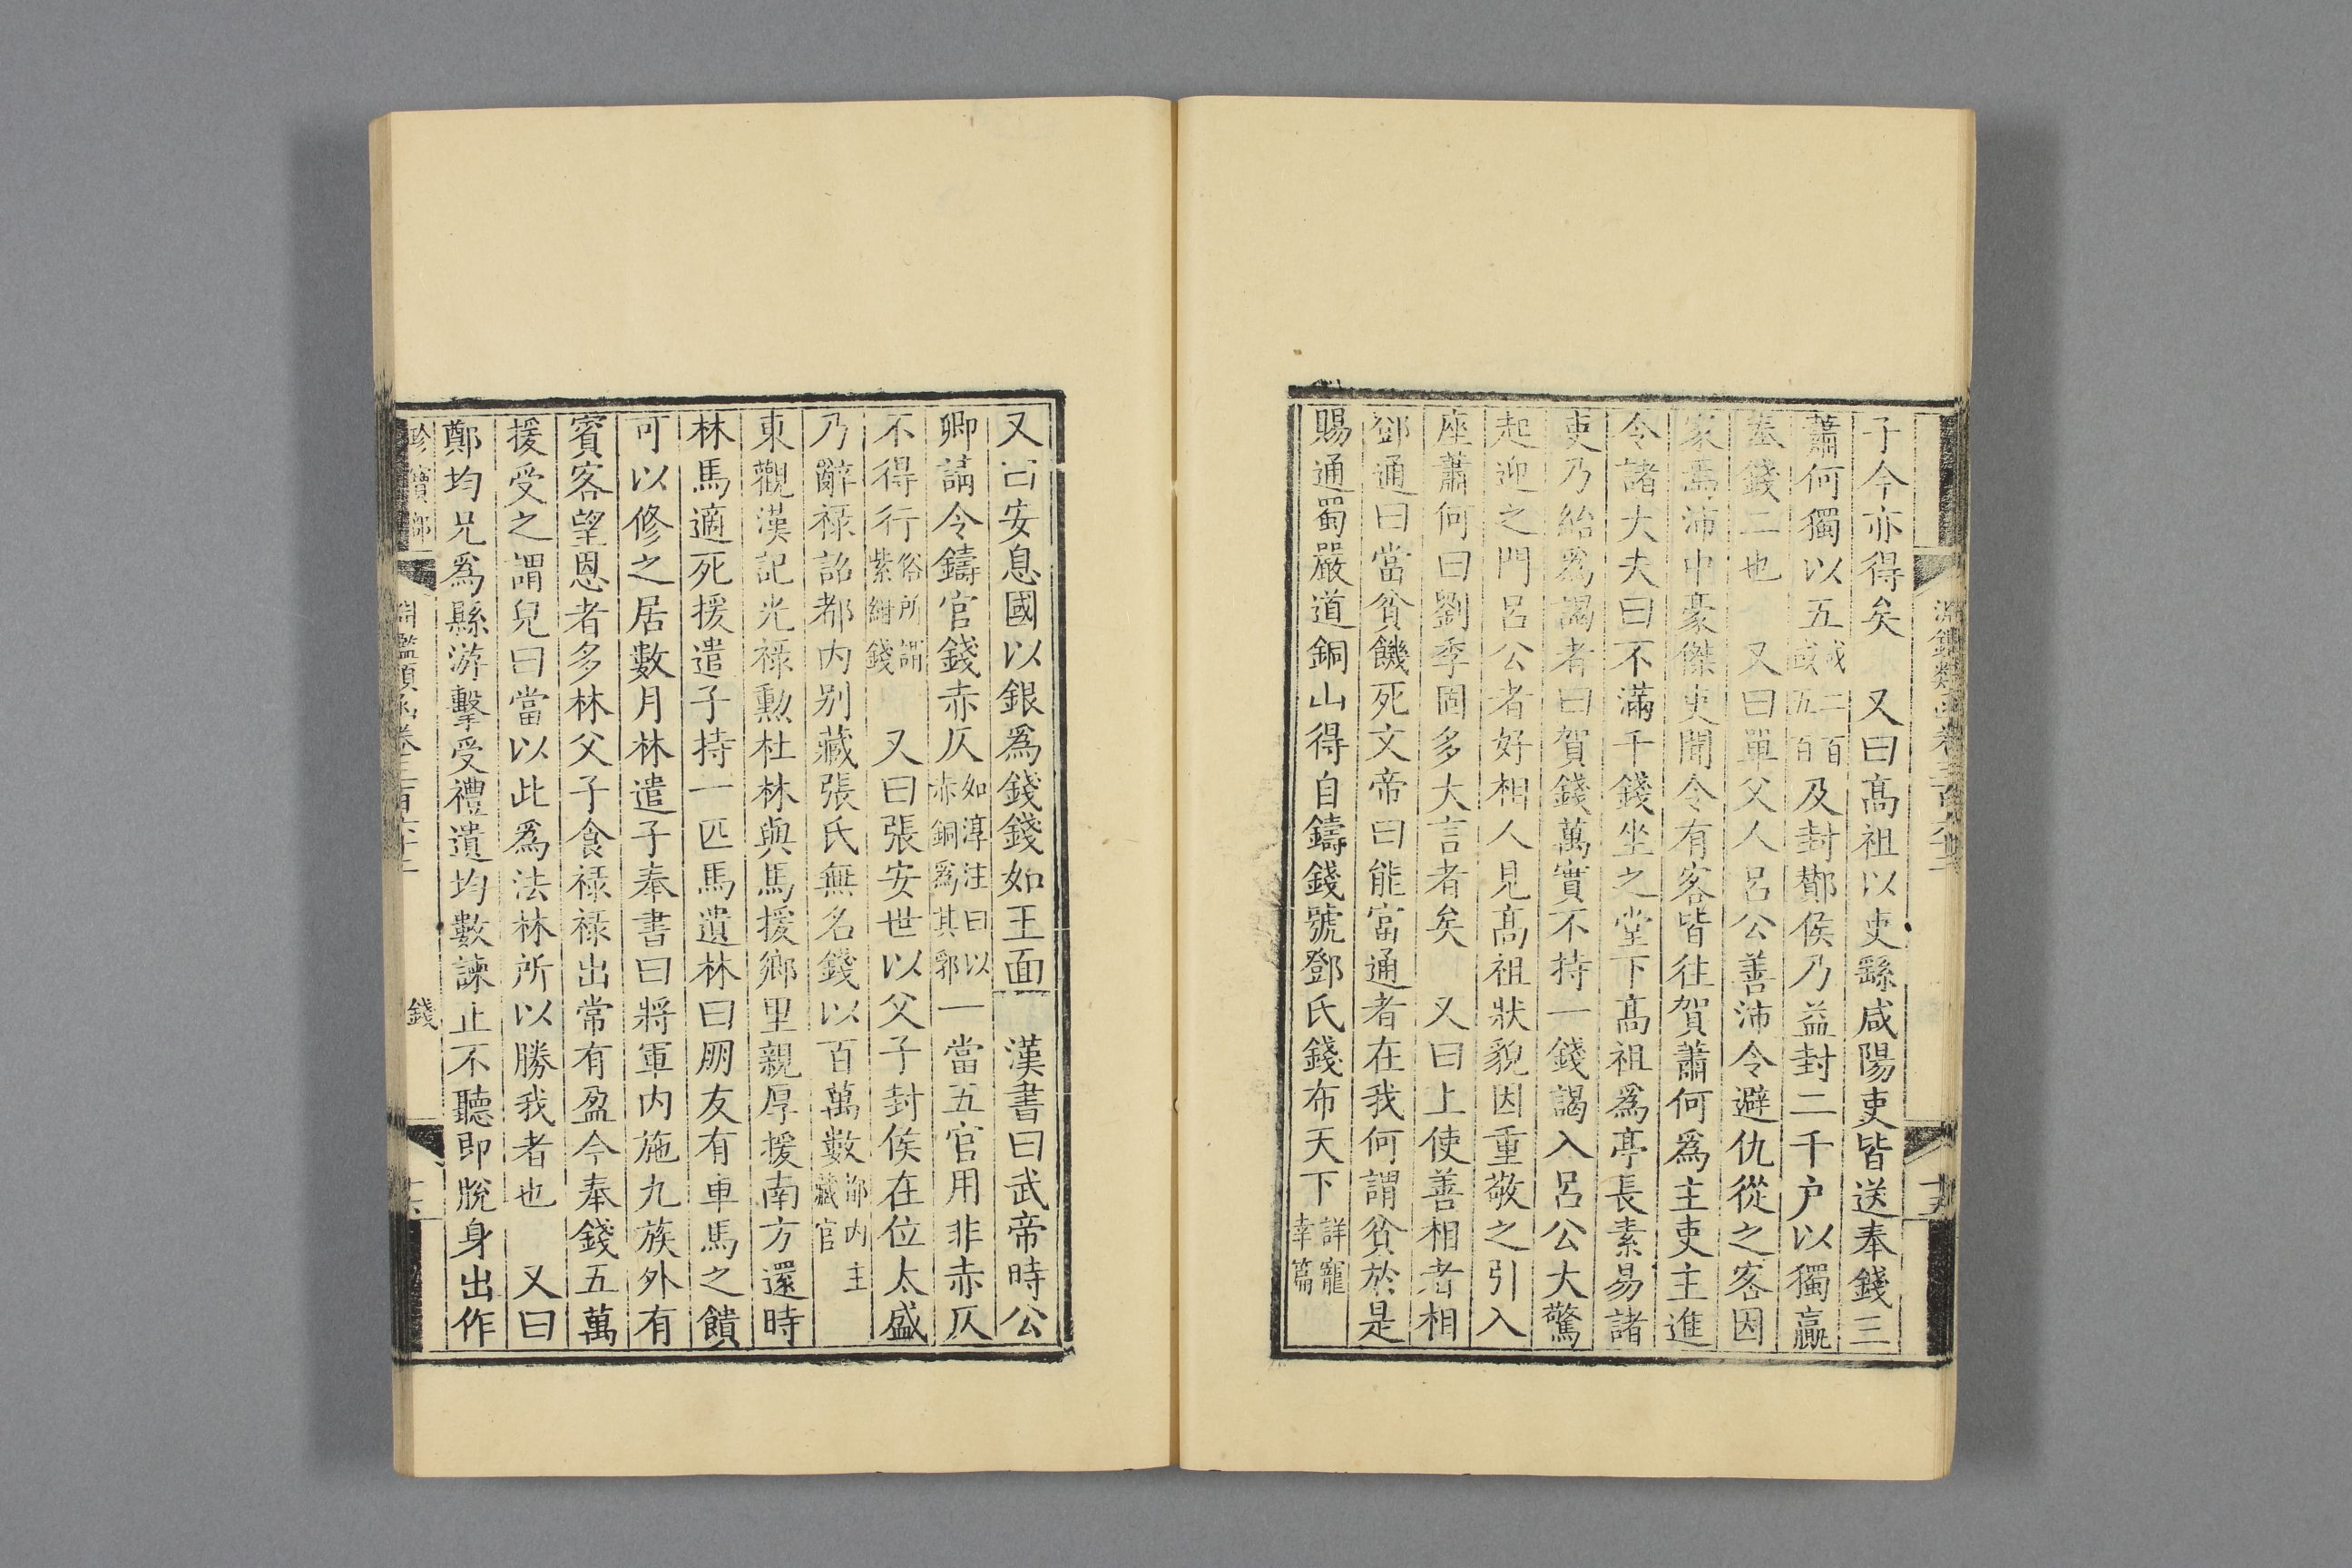 子今亦得矣　又曰高祖以吏繇咸陽吏皆送奉錢三
蕭何獨以五或二百或五百及封酇侯乃益封二千户以獨贏
奉錢二也　又曰單父人呂公善沛令避仇從之客因
家焉沛中豪傑吏聞令有客皆往賀蕭何爲主吏主進
令諸大夫曰不滿千錢坐之堂下高祖爲亭長素易諸
吏乃紿爲謁者曰賀錢萬實不持一錢謁入呂公大驚
起迎之門呂公者好相人見高祖狀貌因重敬之引入
座蕭何曰劉季固多大言者矣　又曰上使善相者相
鄧通曰當貧饑死文帝曰能富通者在我何謂貧於是
賜通蜀嚴道銅山得自鑄錢號鄧氏錢布天下詳寵幸篇
又曰安息國以銀爲錢錢如王面　漢書曰武帝時公
卿請令鑄官錢赤仄如淳注曰以赤銅爲其郭一當五官用非赤仄
不得行俗所謂紫紺錢　又曰張安世以父子封侯在位太盛
乃辭祿詔都内別藏張氏無名錢以百萬數都内主藏官
東觀漢記光祿勲杜林與馬援鄉里親厚援南方還時
林馬適死援遣子持一匹馬遺林曰朋友有車馬之饋
可以修之居數月林遣子奉書曰將軍内施九族外有
賓客望恩者多林父子食祿祿出常有盈今奉錢五萬
援受之謂兒曰當以此爲法林所以勝我者也　又曰
鄭均兄爲縣游擊受禮遺均數諫止不聽即脫身出作
珍寶部
淵鑑類函卷三百六十二
錢